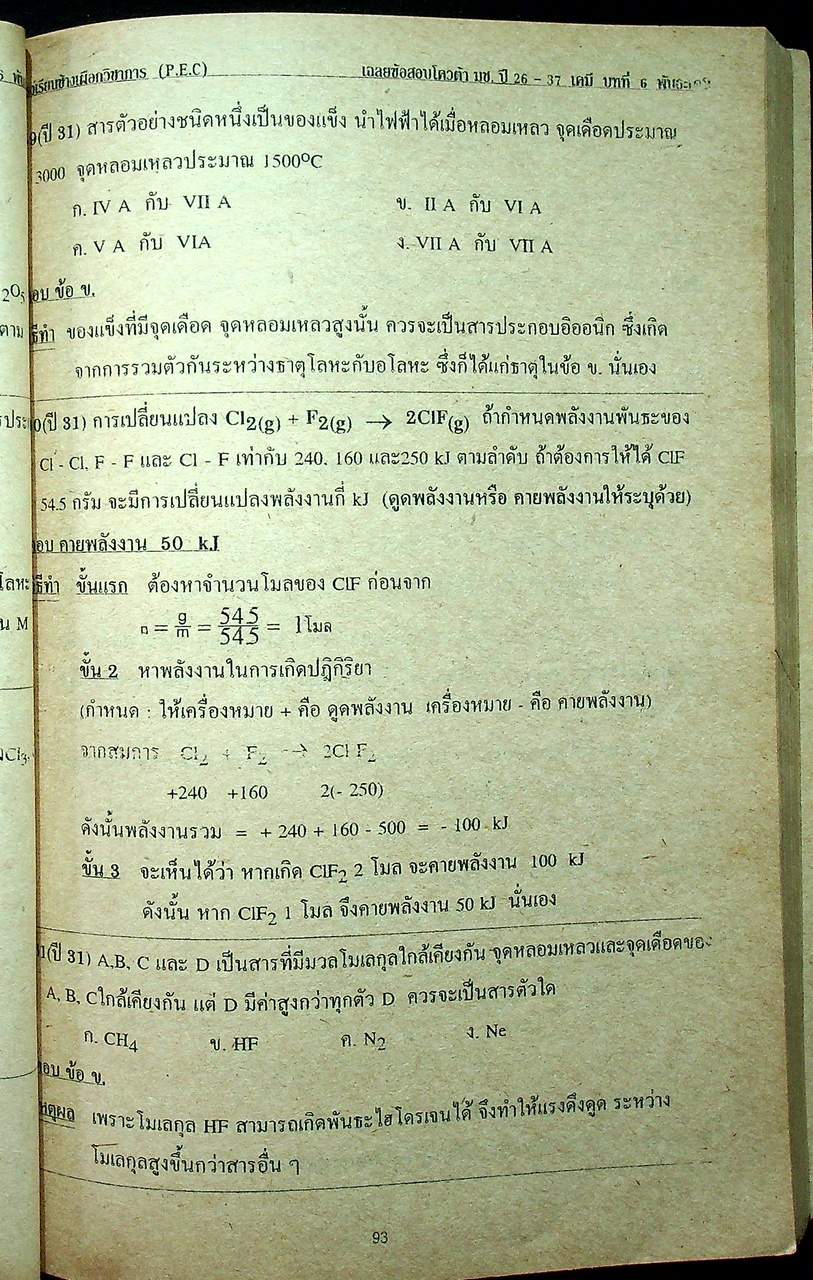 เรียนช้างเผือกวิชาการ (P.E.C) เฉลยข้อสอบโควต้า มช. ปี 26 - 37 เคมี บทที่ 6
9(ปี 31) สารตัวอย่างชนิดหนึ่งเป็นของแข็ง นำไฟฟ้าได้เมื่อหลอมเหลว จุดเดือดประมาณ
3000 จุดหลอมเหลวประมาณ 1500ºC
ก. IV A กับ VII A ข. II A กับ VI A
ค. V A กับ VIA ง. VII A กับ VII A
อบ ข้อ ข.
ธีทำ ของแข็งที่มีจุดเดือด จุดหลอมเหลวสูงนั้น ควรจะเป็นสารประกอบอิออนิก ซึ่งเกิด
จากการรวมตัวกันระหว่างธาตุโลหะกับอโลหะ ซึ่งก็ได้แก่ธาตุในข้อ ข. นั่นเอง
0(ปี 31) การเปลี่ยนแปลง Cl₂(g) + F₂(g) → 2ClF(g) ถ้ากำหนดพลังงานพันธะของ
Cl - Cl, F - F และ Cl - F เท่ากับ 240. 160 และ250 kJ ตามลำดับ ถ้าต้องการให้ได้ ClF
54.5 กรัม จะมีการเปลี่ยนแปลงพลังงานกี่ kJ (ดูดพลังงานหรือ คายพลังงานให้ระบุด้วย)
อบ คายพลังงาน 50 kJ
ธีทำ ขั้นแรก ต้องหาจำนวนโมลของ ClF ก่อนจาก
n = g/m = 545/545 = 1โมล
ขั้น 2 หาพลังงานในการเกิดปฏิกิริยา
(กำหนด : ให้เครื่องหมาย + คือ ดูดพลังงาน เครื่องหมาย - คือ คายพลังงาน)
จากสมการ Cl₂ + F₂ → 2Cl F₂
+240 +160 2(- 250)
ดังนั้นพลังงานรวม = + 240 + 160 - 500 = - 100 kJ
ขั้น 3 จะเห็นได้ว่า หากเกิด ClF₂ 2 โมล จะคายพลังงาน 100 kJ
ดังนั้น หาก ClF₂ 1 โมล จึงคายพลังงาน 50 kJ นั่นเอง
1(ปี 31) A,B, C และ D เป็นสารที่มีมวลโมเลกุลใกล้เคียงกัน จุดหลอมเหลวและจุดเดือดของ
A, B, Cใกล้เคียงกัน แต่ D มีค่าสูงกว่าทุกตัว D ควรจะเป็นสารตัวใด
ก. CH₄ ข. HF ค. N₂ ง. Ne
อบ ข้อ ข.
หตุผล เพราะโมเลกุล HF สามารถเกิดพันธะไฮโดรเจนได้ จึงทำให้แรงดึงดูด ระหว่าง
โมเลกุลสูงขึ้นกว่าสารอื่น ๆ
93